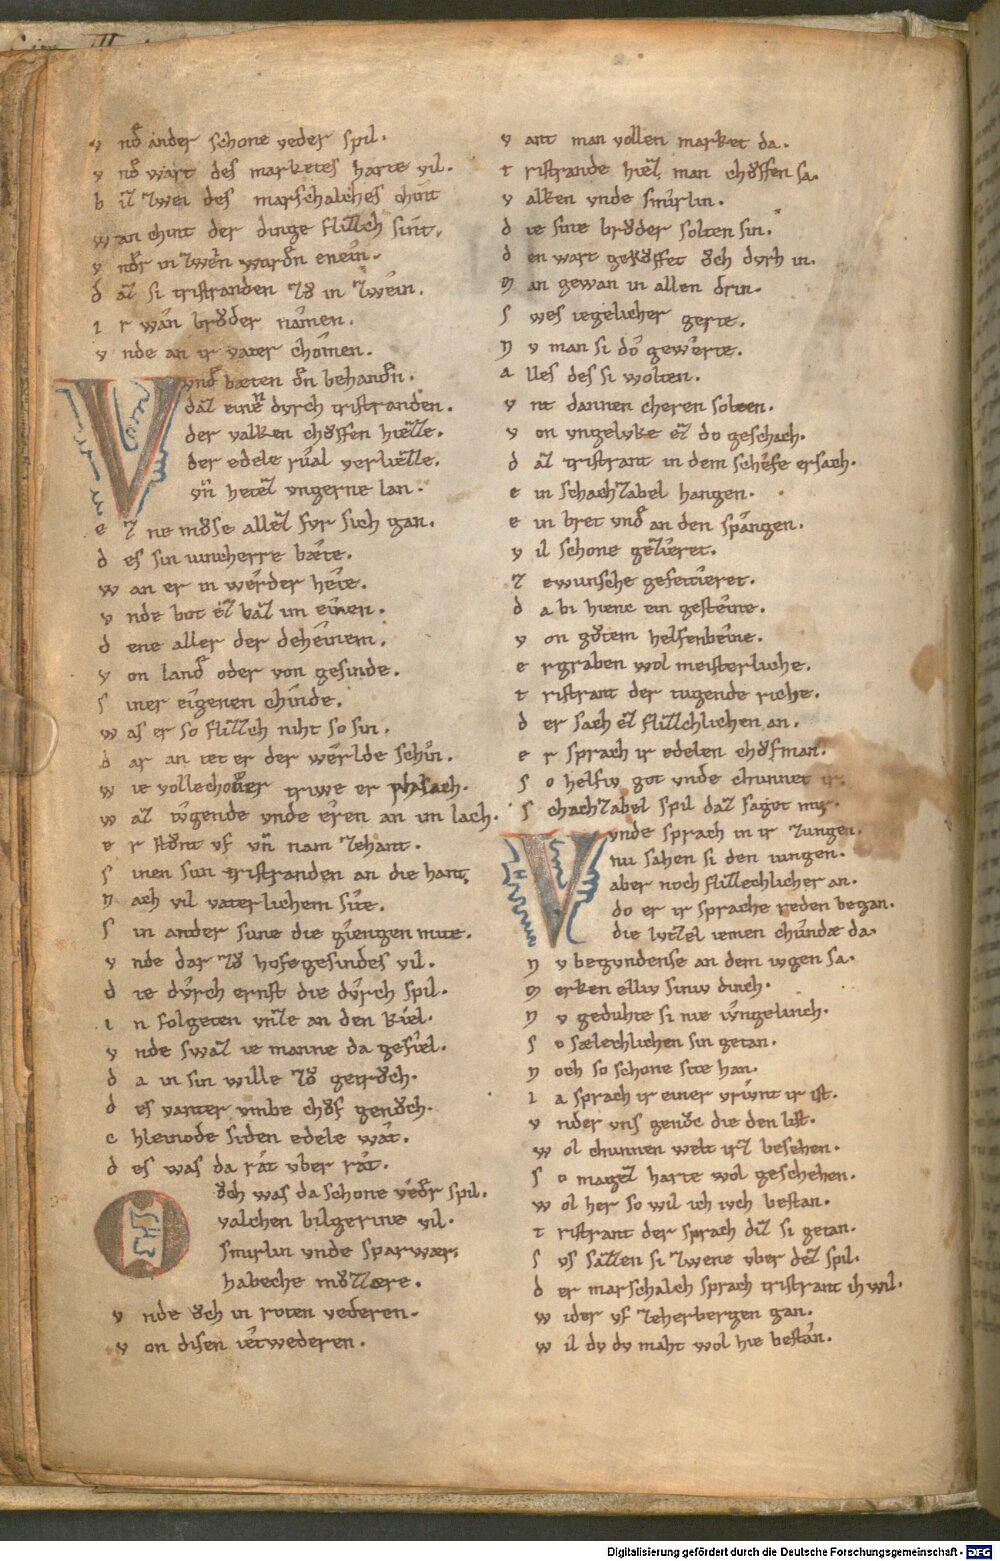 v nd ander schone veder spil.
v nd wart des marketes harte vil.
b iz zwei des marschalches chint
w an chint der dinge flizzch sint.
v nder in zwen wurdn enein.
d az si tristranden zů in zwein.
i r wan brůder namen.
v nde an ir vater chomen.
Vnd bæten dn behandn.
daz einer dvrch tristranden.
der valken chǒffen hiezze.
der edele rual verliezze.
vn̄ hetez vngerne lan.
e z ne mǒse allez fvr sich gan.
d es sin iuncherre bæte.
w an er in werder hete.
v nde bot ez baz im einen.
d ene aller der deheinem.
v on land oder von gesinde.
s iner eigenen chinde.
w as er so flizzch niht so sin.
d ar an tet er der werlde schin.
w ie vollechomer triwe er phlach.
w az tvgende vnde eren an im lach.
e r stǒnt vf vn̄ nam zehant.
s inen sun tristranden an die hant.
n ach vil vaterlichem site.
s in ander sune die giengen mite.
v nde dar zů hofegesindes vil.
d ie dvrch ernst die dvrch spil.
i n folgeten vnze an den kiel.
v nde swaz ie manne da gefiel.
d a in sin wille zů getrǒch.
d es vanter vmbe chǒf genǒch.
c hleinode siden edele wat.
d es was da rat vber rat.
ǒch was da schone veder spil.
valchen bilgerine vil.
smirlin vnde sparwær.
habeche mǒzzære.
v nde ǒch in roten vederen.
v on disen ietwederen.
v ant man vollen market da.
t ristrande hiez man chǒffen sa.
v alken vnde smirlin.
d ie sine brǒder solten sin.
d en wart gekǒffet ǒch dvrh in.
m an gewan in allen drin.
s wes iegelicher gerte.
n v man si do gewerte.
a lles des si wolten.
v nt dannen cheren solten.
v on vngelvke ez do geschach.
d az tristrant in dem schefe ersach.
e in schachzabel hangen.
e in bret vnd an den spangen.
v il schone gezieret.
z ewunsche gefeitieret.
d a bi hienc ein gesteine.
v on gǒtem helfenbeine.
e rgraben wol meisterliche.
t ristrant der tugende riche.
d er sach ez flizzchlichen an.
e r sprach ir edelen chǒfman.
s o helfiv got vnde chunnet ir.
s chachzabel spil daz saget mir.
Vnde sprach in ir zungen.
nu sahen si den iungen.
aber noch flizzechlicher an.
do er ir sprache reden began.
die lvtzel iemen chundæ da.
n v begvndense an dem ivgen sa.
m erken elliv siniv dinch.
n v geduhte si nie ivngelinch.
s o sælechlichen sin getan.
n och so schone site han.
i a sprach ir einer vrivnt ir ist.
v nder vns genǒc die den list.
w ol chunnen welt irz besehen.
s o magez harte wol geschehen.
w ol her so wil ich ivch bestan.
t ristrant der sprach diz si getan.
s vs sazzen si zwene vber dez spil.
d er marschalch sprach tristrant ih wil.
w ider vf zeherbergen gan.
w il dv dv maht wol hie bestan.
Digitalisierung gefördert durch die Deutsche Forschungsgemeinschaft - DFG